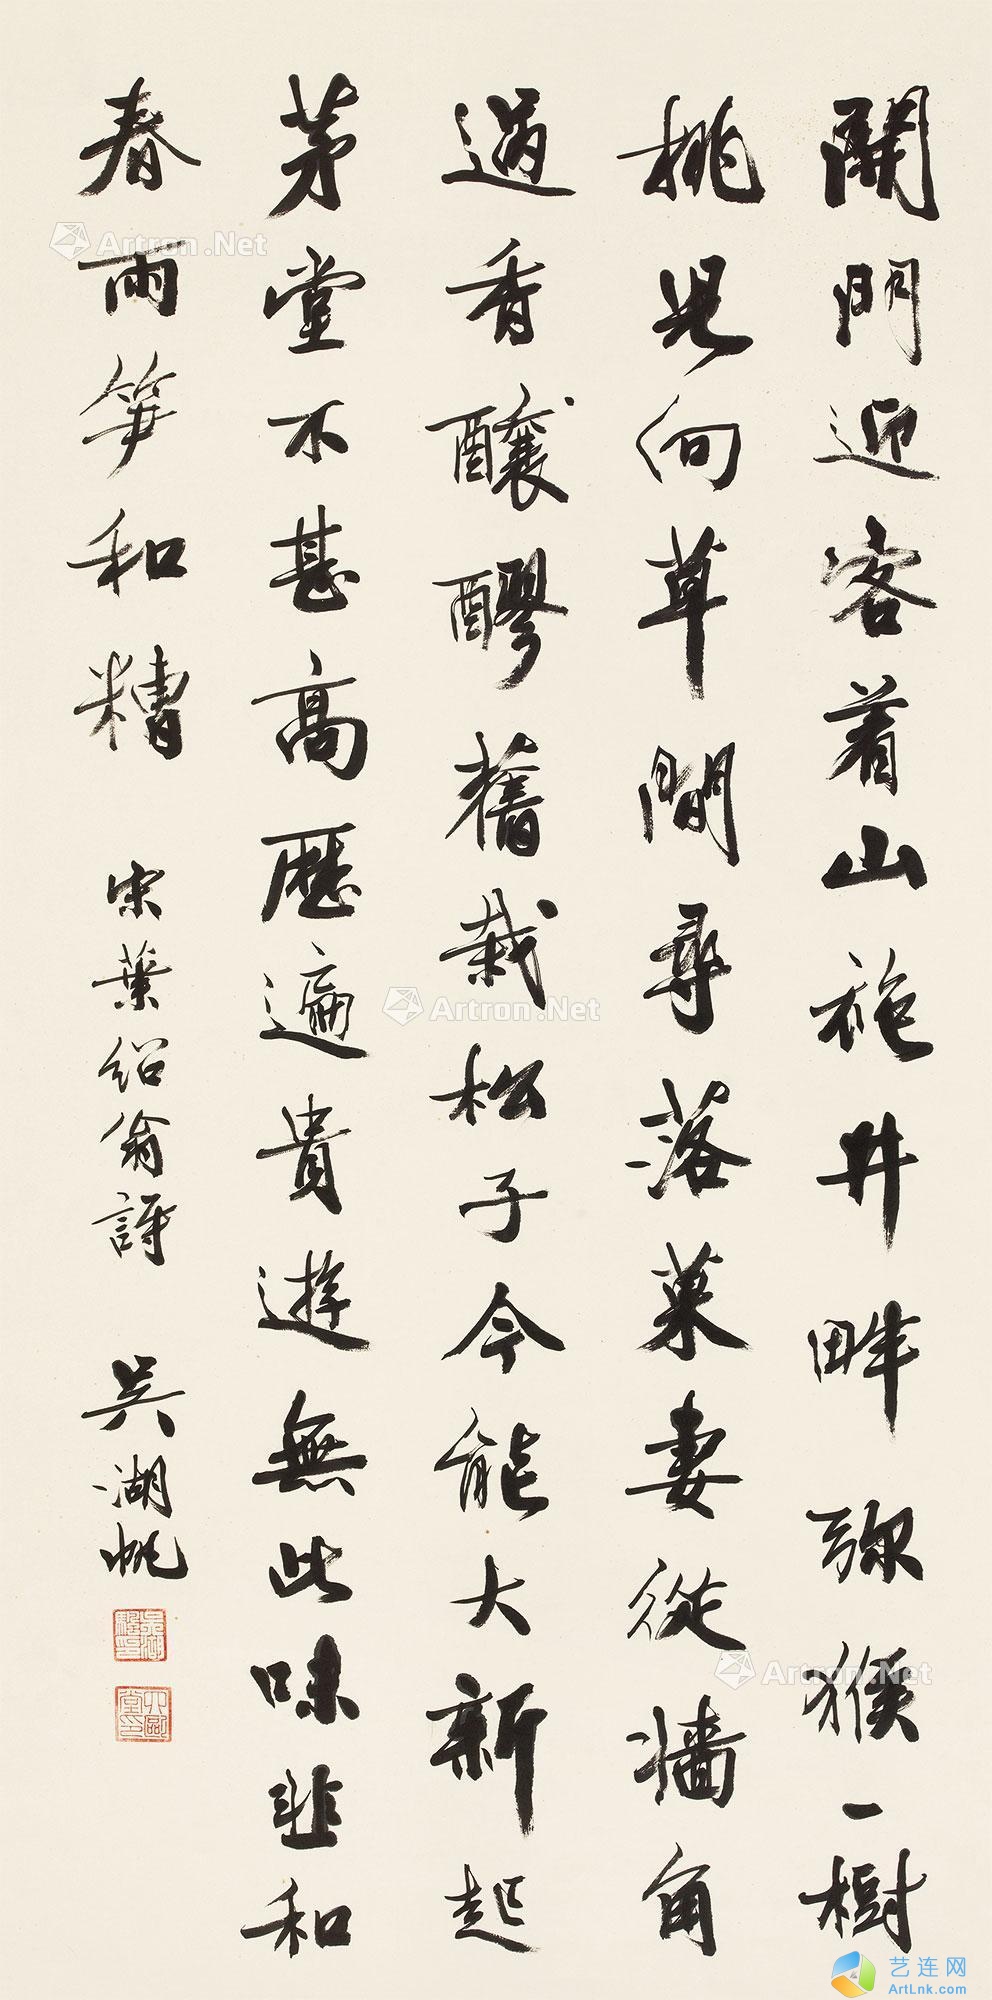 開門迎客着山袍井畔弥猴一樹
桃兒向草間尋落菓妻從墻角
過香釀醪舊栽松子今能大新起
茅堂不甚高歷遍貴遊無此味韭和
春雨笋和糟 宋葉紹翁詩 吳湖帆
吳湖颿印
Artron.Net
Artron.Net
Artron.Net
艺连网
ArtLnk.com